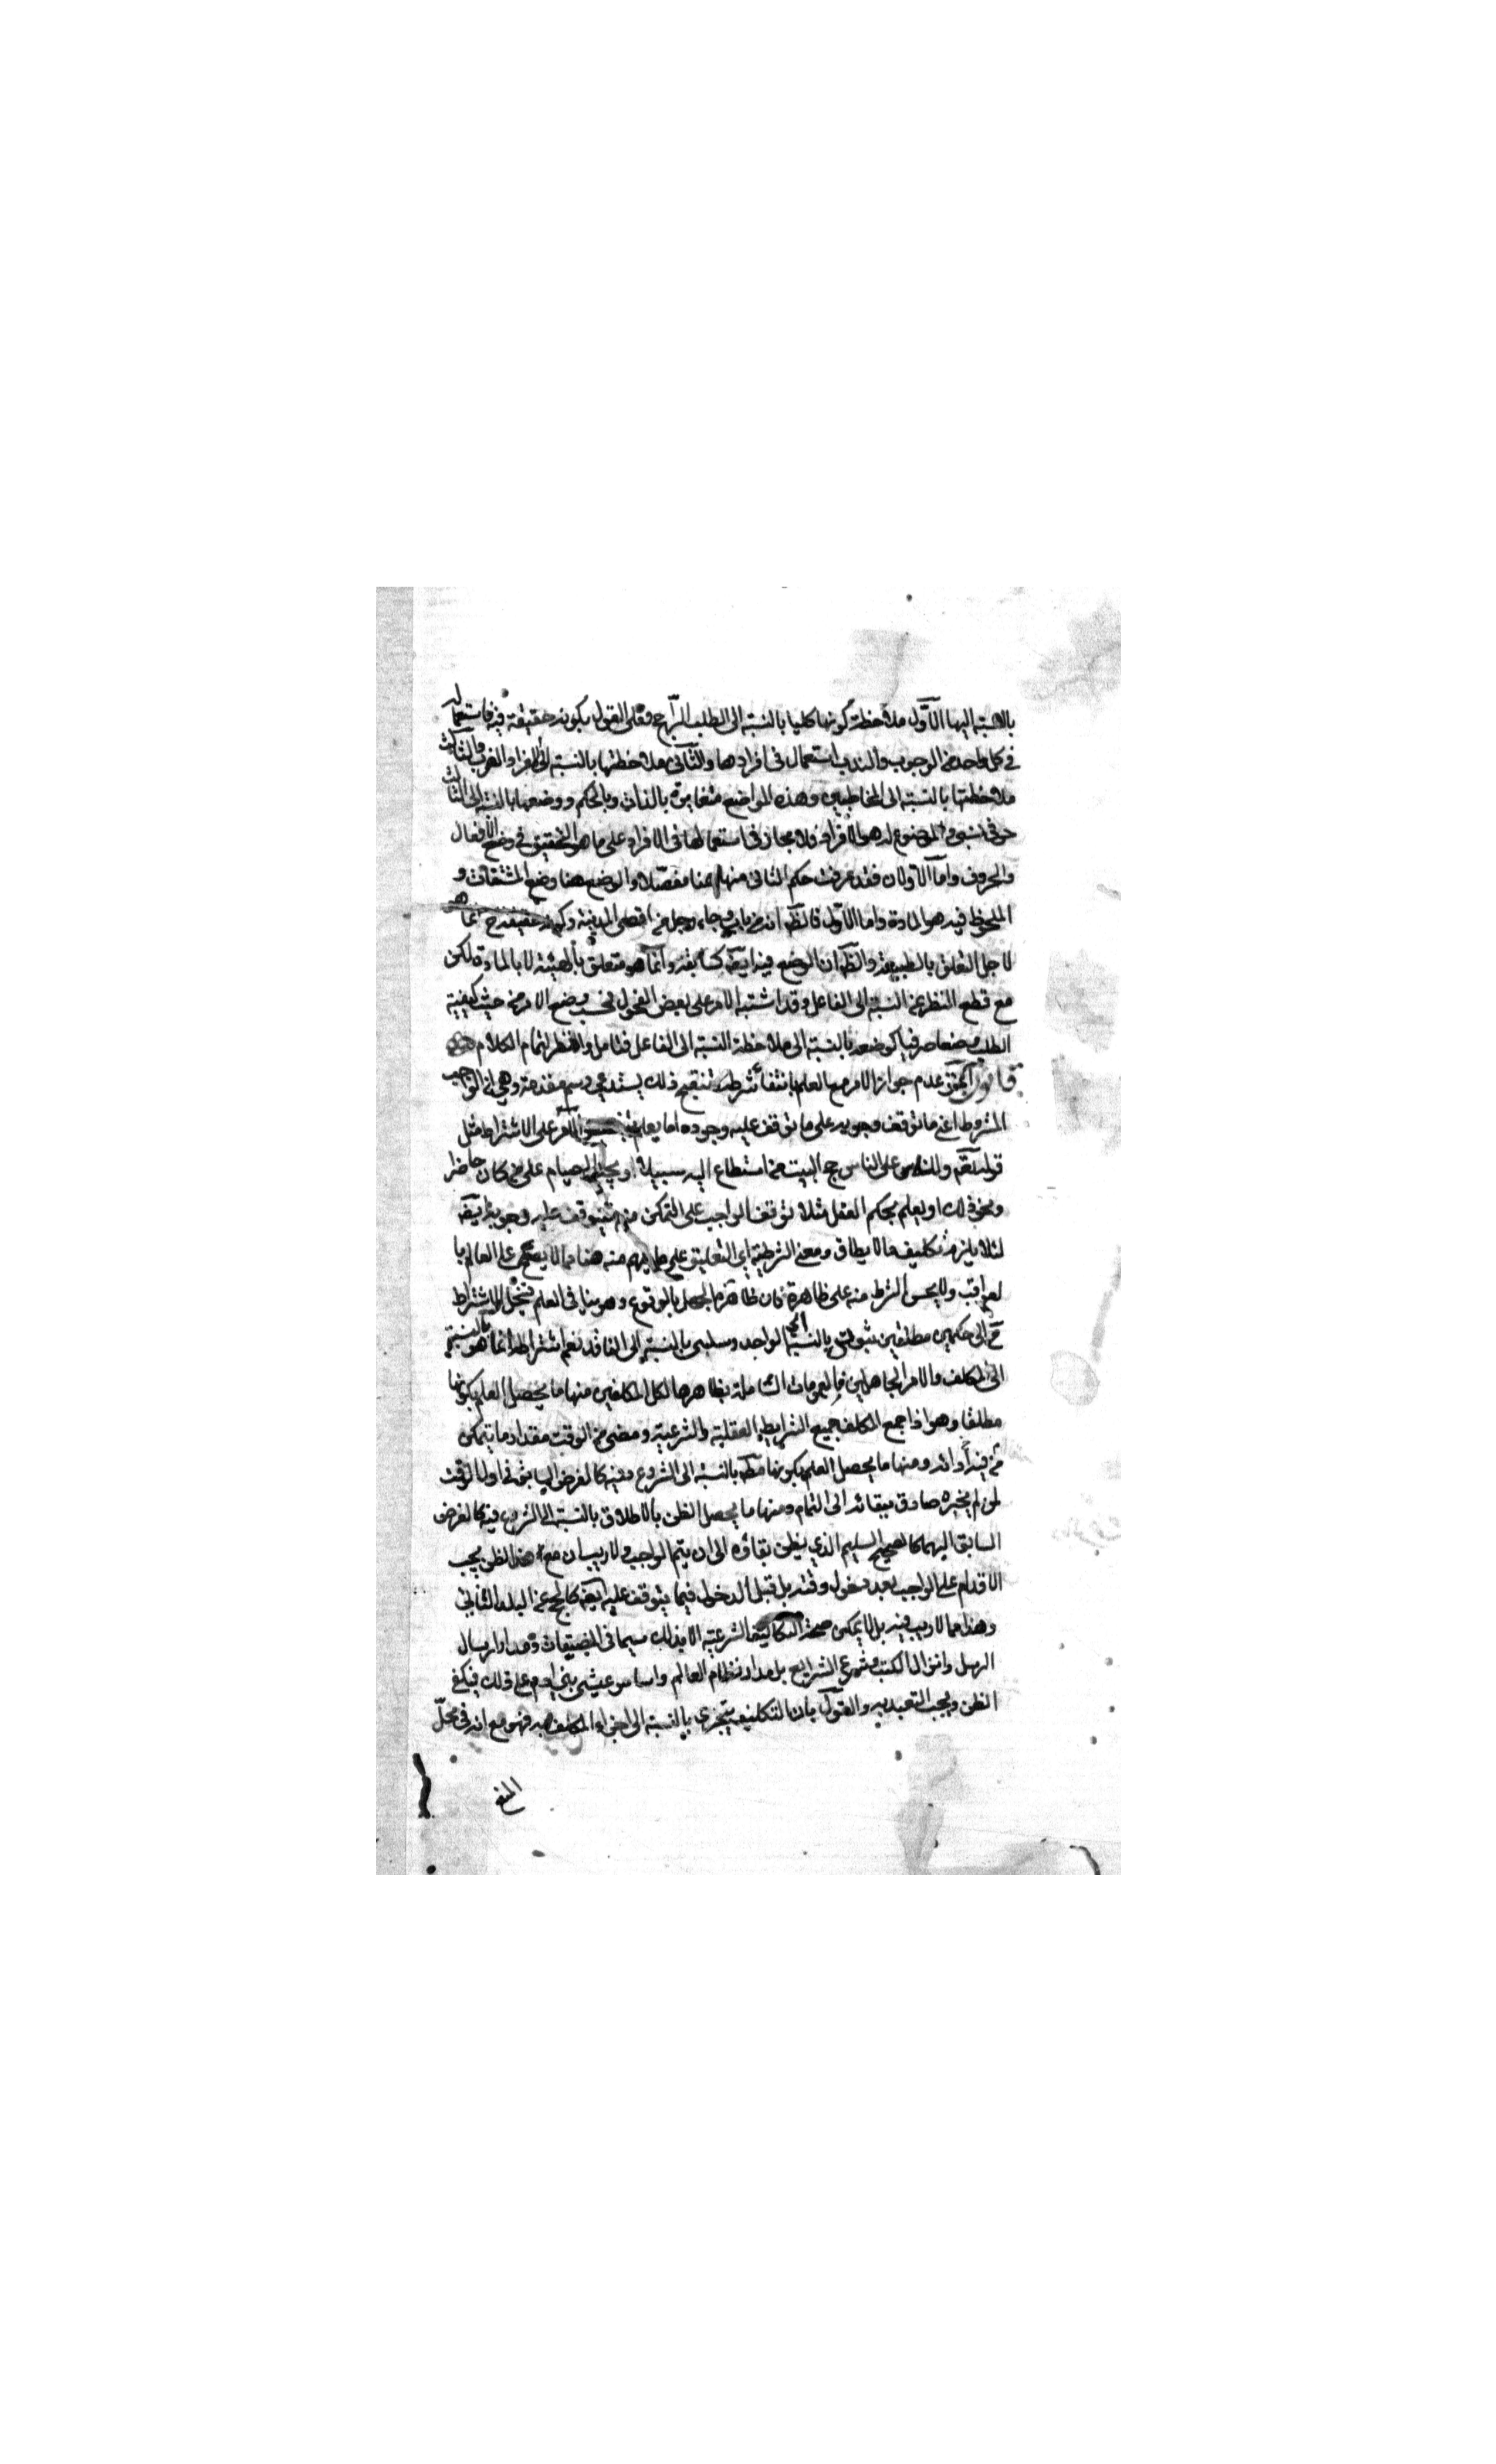 بالنسبة اليها الاول ملاحظة كونها كليا بالنسبة الى الطلب الراجح فعلى القول بكونه حقيقة فيه فاستعماله
في كل واحد من الوجوب والندب استعمال في افرادها والثاني ملاحظتها بالنسبة الى افراد الضرب والثالث
ملاحظتها بالنسبة الى المخاطبين وهذه المواضع متغايرة بالذات وبالحكم ووضعها بالنسبة الى الثالث
حرفي نسبي والموضوع له هو الافراد فلا مجاز في استعمالها في الافراد على ما هو التحقيق في وضع الافعال
والحروف واما الاولان فقد عرفت حكم الثاني منهما هنا مفصلا والوضع هنا وضع المشتقات و
الملحوظ فيه هو المادة واما الاول فالظ انه من باب وجاء رجل من اقصى المدينة وكونه حقيقة ح انما هو
لاجل التعلق بالطبيعة والظ ان الوضع فيه ايضه كسابقه وانما هو متعلق بالهيئة لا بالمادة لكن
مع قطع النظر عن النسبة الى الفاعل وقد اشتبه الامر على بعض الفحول فحسب وضع الامر من حيث كيفية
الطلب وضعا حرفيا كوضعه بالنسبة الى ملاحظة النسبة الى الفاعل فتامل وانتظر لتمام الكلام
قانون الحق عدم جواز الامر مع العلم بانتفاء شرطه وتنقيح ذلك يستدعي رسم مقدمة وهي ان الواجب
المشروط اعني ما توقف وجوبه على ما توقف عليه وجوده اما يعلم الامر على الاشتراط مثل
قوله تعه ولله على الناس حج البيت من استطاع اليه سبيلا او يجب الصيام على من كان حاضرا
ونحو ذلك او يعلم بحكم العقل مثلا توقف الواجب على التمكن منه فيتوقف عليه وجوبه ايضه
لئلا يلزم تكليف ما لا يطاق ومعنى الشرطية اي التعليق على ما يفهم منه هنا مما لا يصح على العالم با
لعواقب ولا يحسن الشرط منه على ظاهره فان ظاهره الجهل بالوقوع وهو ينافي العلم فينحل الاشتراط
ح الى حكمين مطلقين ثبوتي بالنسبة الى الواجد وسلبي بالنسبة الى الفاقد نعم اشتراطه انما هو بالنسبة
الى المكلف والامر الجاهلين فالعمومات الشاملة بظاهرها لكل المكلفين منها ما يحصل العلم بكونها
مطلقا وهو اذا جمع المكلف جميع الشرايط العقلية والشرعية ومضى من الوقت مقدار ما يتمكن
من فيه اداءه ومنها ما يحصل العلم بكونها مطه بالنسبة الى الشروع فيه كالفرض السابق في اول الوقت
لمن لم يخبره صادق ببقائه الى التمام ومنها ما يحصل الظن بالاطلاق بالنسبة الى الشروع فيه كالفرض
السابق اليهما كالصحيح السليم الذي يظن بقاؤه الى ان يتم الواجب ولا ريب ان مع هذا الظن يجب
الاقدام على الواجب بعد دخول وقته بل قبل الدخول فيما يتوقف عليه ايضه كالحج عن البلد النائي
وهذا مما لا ريب فيه بل لا يمكن صحة التكاليف الشرعية الا بذلك سيما في المضيقات ومدار ارسال
الرسل وانزال الكتب وشرع الشرايع بل مدار نظام العالم واساس عيش بني ادم على ذلك فيكفي
الظن ويجب التعبد به والقول بان التكليف يتجزى بالنسبة الى اجزاء المكلف به فهو مع انه في محل
المنع